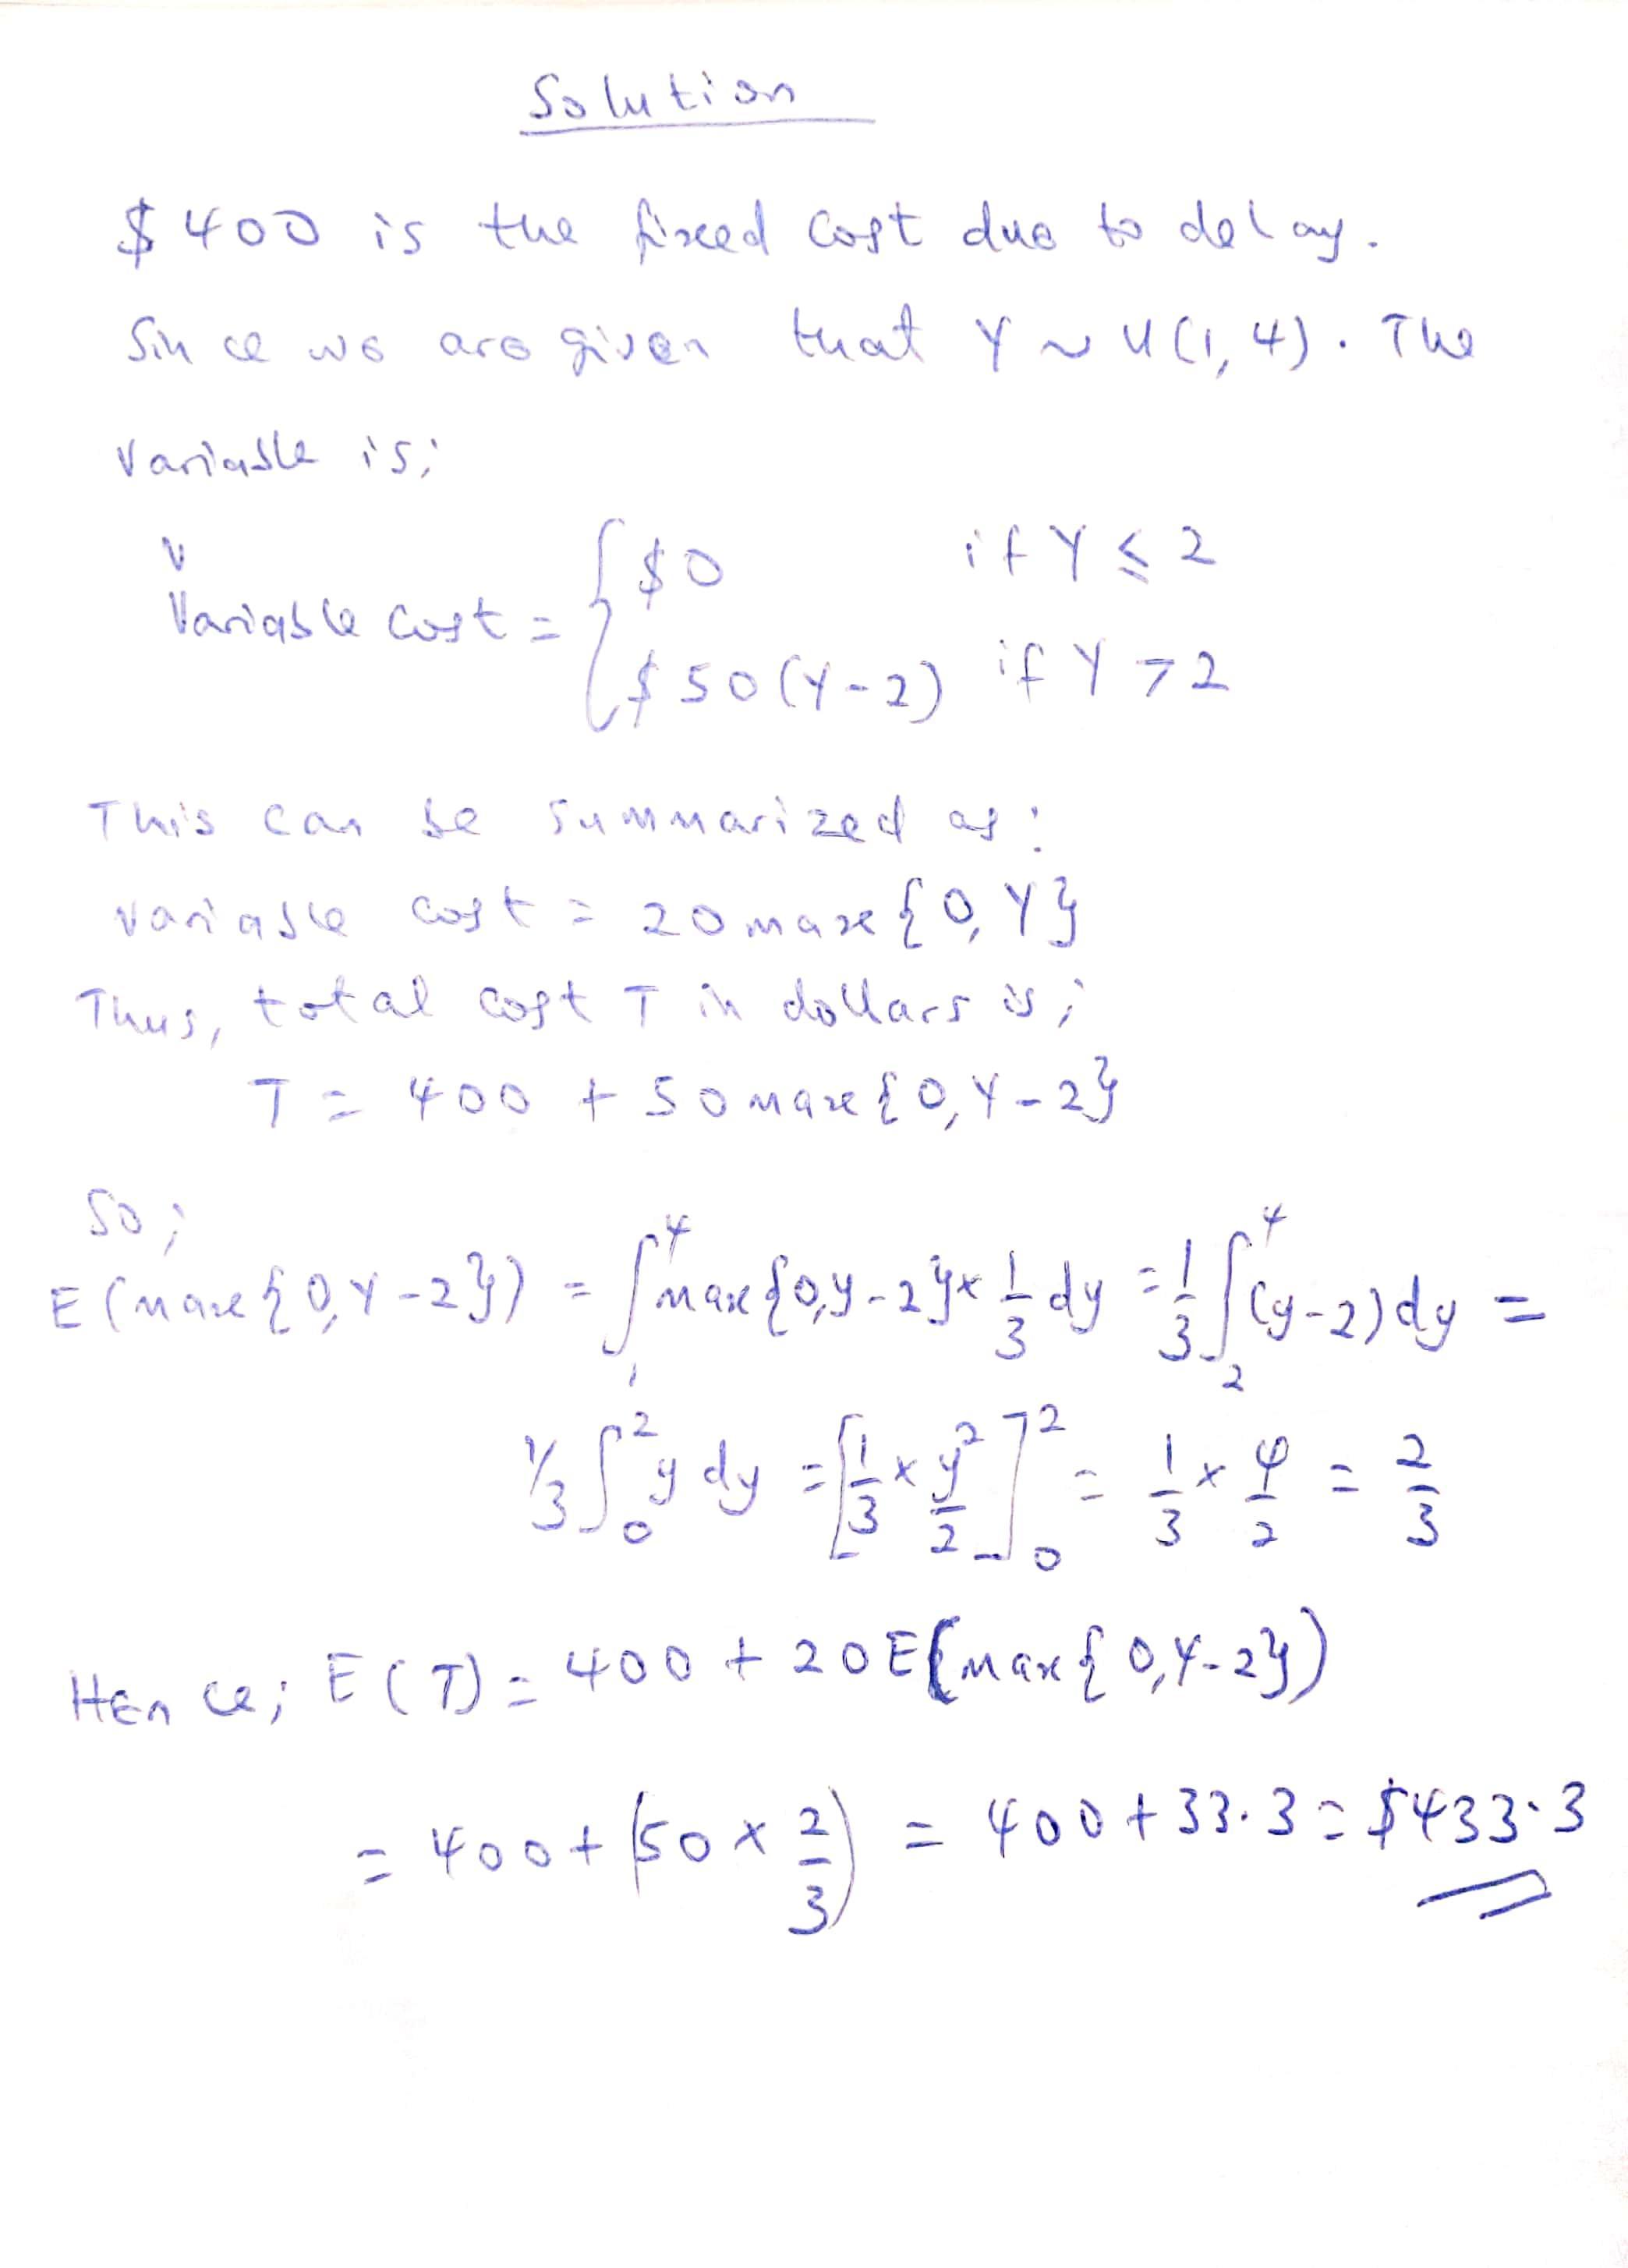 Solution
$400 is the fixed cost due to delay.
Since we are given that Y ~ U(1,4). The
variable is;
V
Variable cost = { $0 if Y ≤ 2
$50(Y-2) if Y > 2
This can be summarized as:
variable cost = 20 max{0, Y}
Thus, total cost T in dollars is;
T = 400 + 50 max{0, Y-2}
So;
E(max{0, Y-2}) = ∫₁⁴ max{0, y-2} × 1/3 dy = 1/3 ∫₂⁴ (y-2) dy =
1/3 ∫₀² y dy = [1/3 × y²/2]₀² = 1/3 × 4/2 = 2/3
Hence; E(T) = 400 + 20E(max{0, Y-2})
= 400 + (50 × 2/3) = 400 + 33.3 = $433.3